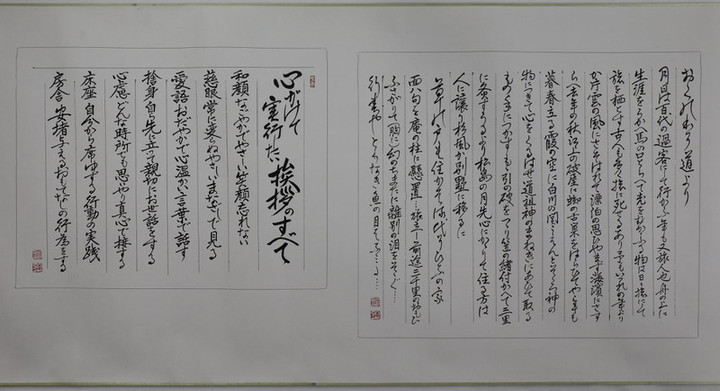 おくのほそ道より
月日は百代の過客にして行かふ年も又旅人也舟の上に
生涯をうかべ馬の口とらへて老をむかふる物は日々旅にして
旅を栖とす古人も多く旅に死せるあり予もいづれの年より
か片雲の風にさそはれて漂泊の思ひやまず海濱にさす
らへ去年の秋江上の破屋に蜘の古巣をはらひてやゝ年も
暮春立る霞の空に白川の関こえんとそゞろ神の
物につきて心をくるはせ道祖神のまねきにあひて取る
もの手につかずもゝ引の破をつゞり笠の緒付かへて三里
に灸すうるより松島の月先心にかゝりて住る方は
人に譲り杉風が別墅に移るに
草の戸も住かはる代ぞひなの家
面八句を庵の柱に懸置 旅立 前途三千里の思ひ
ふさがりて 幻のちまたに離別の泪をそゝぐ…
行春や
心がけて
実行したい挨拶のすべて
和顔 なごやかでやさしい笑顔忘れない
慈眼 常に変らぬやさしいまなざしで見る
愛語 おだやかで心温かい言葉で話す
捨身 自ら先に立って親切にお世話をする
心慮 どんな時所でも思いやり真心で接する
床座 自分から席ゆずる行動の実践
房舎 安堵与えるおもてなしの行為をする